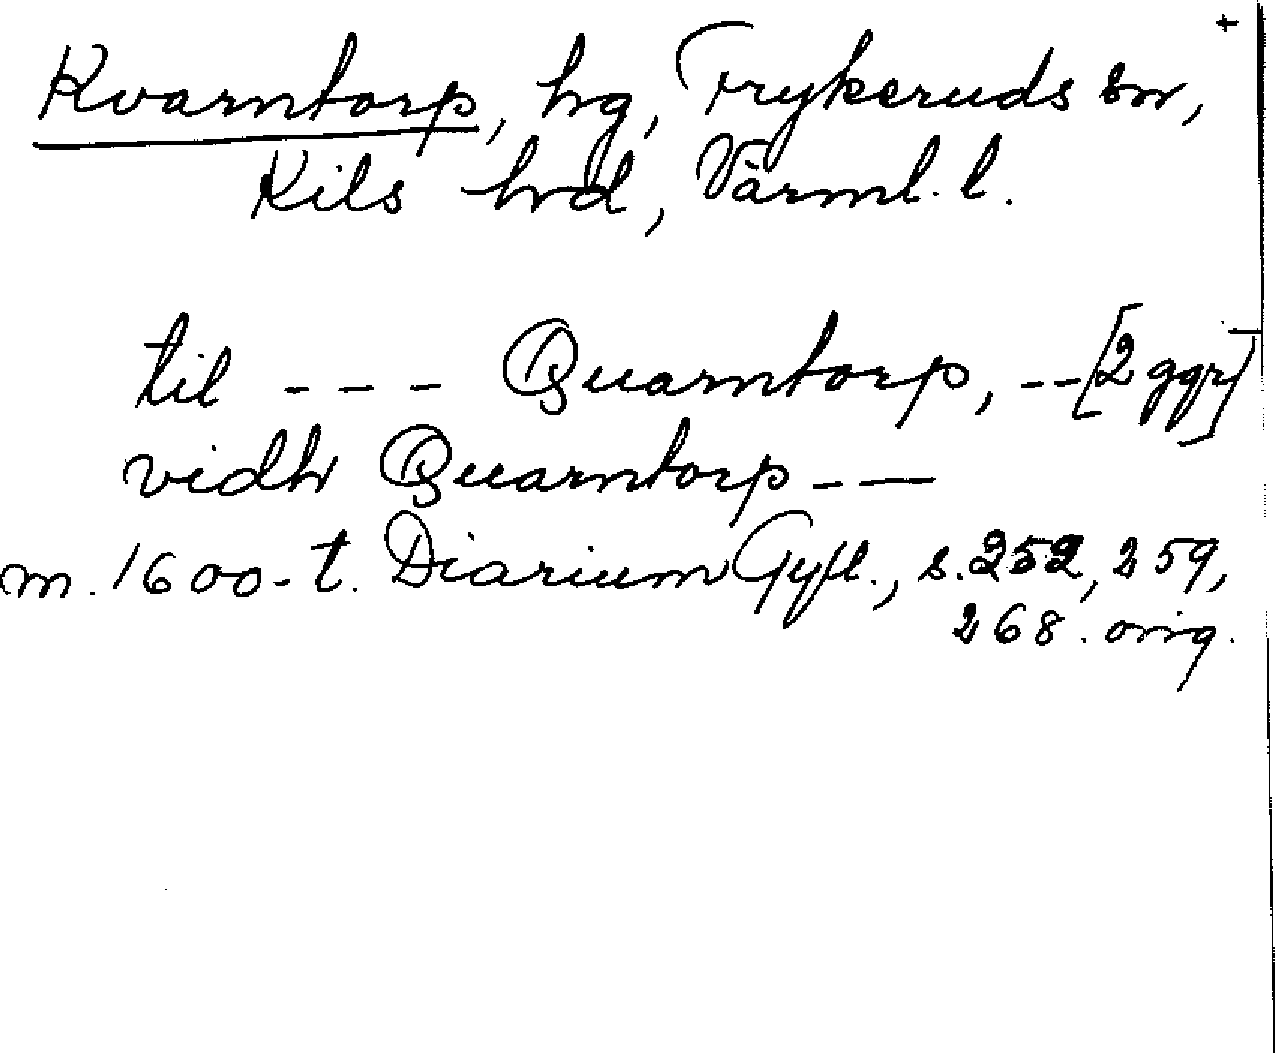 +
Kvarntorp, hg, Frykeruds sn,
Kils hrd, Värml. l.
til - - - Quarntorp, -- [2 ggr]
vidh Quarntorp ---
m. 1600-t. Diarium Gyll., s. 252, 259,
268. orig.